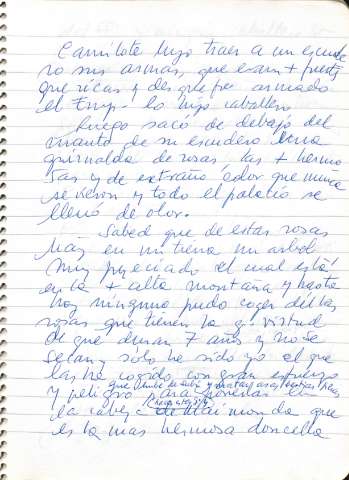 Camilote hizo traer a un escude
ro sus armas, que eran + fuertes
que ricas y des que fue armado
el Emp. lo hizo caballero
Luego sacó de debajo del
manto de su escudero una
guirnalda de rosas, las + hermo
sas y de extraño color que nunca
se vieron y todo el palacio se
llenó de olor.
Sabed que de estas rosas
hay en mi tierra un arbol
muy preciado el cual está
en la + alta montaña y hasta
hoy ninguno pudo coger de las
rosas que tienen la virtud
de que duran 7 años y no se
secan y sólo he sido yo el que
las ha cogido con gran esfuerzo
que hube de subir y matar
y peligro para ponerlas en
la cabeza de Maimonda que
es la mas hermosa doncella